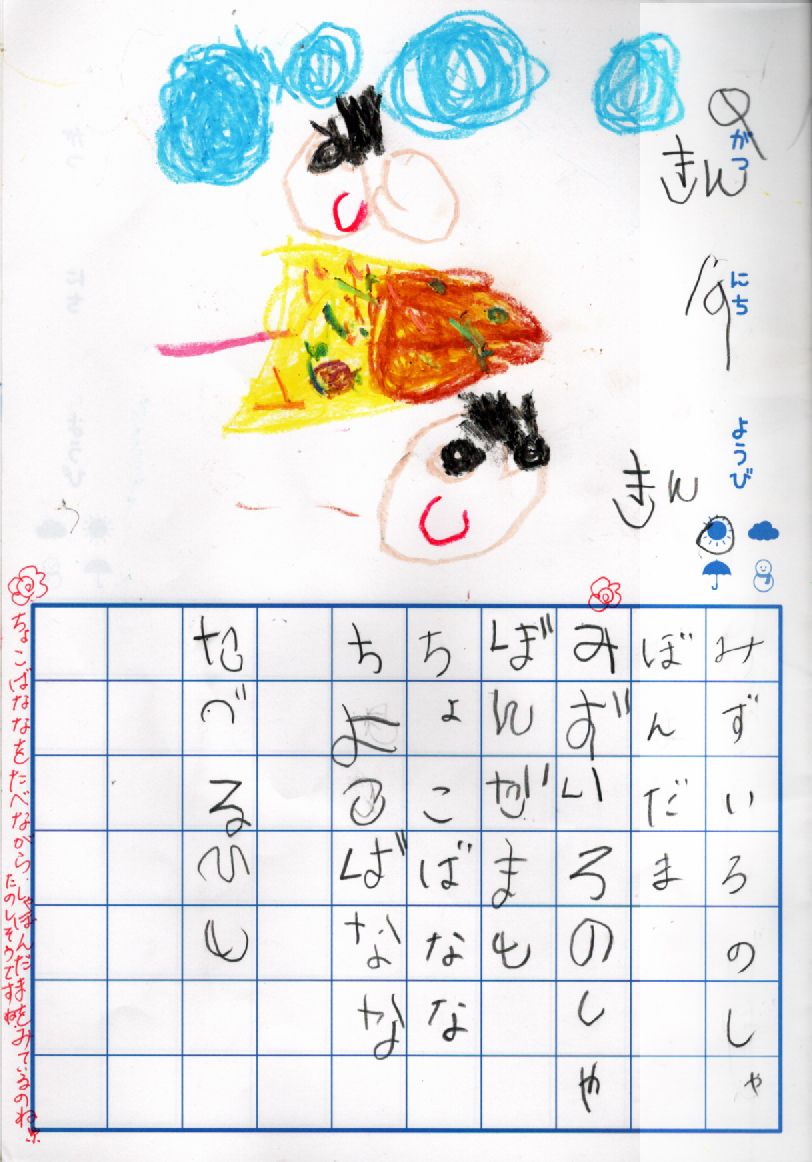 9
がつ
きん
にち
ようび
きん
みずいろのしゃ
ぼんだま
みずいろのしゃ
ぼんだまも
ちょこばなな
ちよこばなな
たべるひも
ちょこばななをたべながら、しゃぼんだまをみているのね。
たのしそうですね。